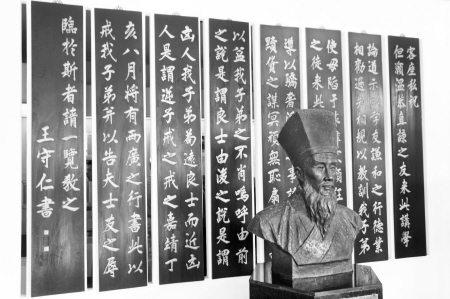 客座私祝
但願溫恭直諒之友來此講學
論道示以孝友謙和之行德業
相勸過失相規以教訓我子弟
使毋陷于
之徒來此
導以驕奢
黷貨之謀冥頑無恥扇
以益我子弟之不肖嗚呼由前
之說是謂良士由後之說是謂
凶人我子弟苟遠良士而近凶
人是謂逆子戒之戒之嘉靖丁
亥八月將有兩廣之行書此以
戒我子弟并以告夫士友之辱
臨於斯者請一覽教之
王守仁書